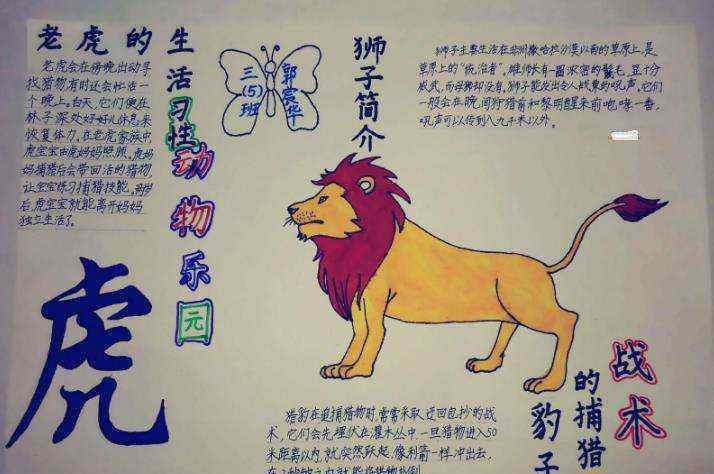 老虎的生活习性
老虎会在傍晚出动寻
找猎物,有时还会忙活一
个晚上。白天,它们便在
林子深处好好儿休息来
恢复体力。在老虎家族中,
虎宝宝由虎妈妈照顾。虎妈
妈捕猎后会带回活的猎物,
让宝宝练习捕猎技能。两岁
后,虎宝宝就能离开妈妈
独立生活了。
三(5)班
郭宸华
动物乐园
狮子简介
狮子主要生活在非洲撒哈拉沙漠以南的草原上,是
草原上的“统治者”。雄狮长有一圈浓密的鬃毛,显十分
威武,而母狮却没有。狮子能发出令人战栗的吼声,它们
一般会在晚间狩猎前和黎明醒来前咆哮一番,
吼声可以传到八九千米以外。
虎
豹子
的捕猎
战术
猎豹在追捕猎物时,常常采取迂回包抄的战
术。它们会先埋伏在灌木丛中,一旦猎物进入50
米距离以内,就突然跃起,像利箭一样冲出去,